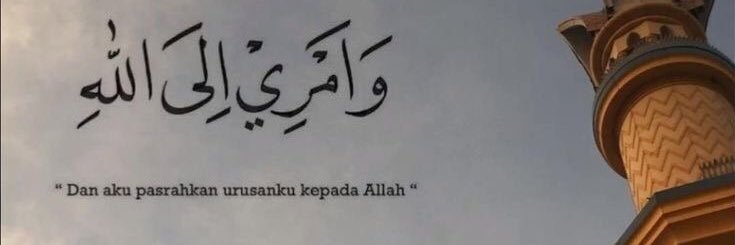 وَاَمْرِيْ اِلىَ اللهِ
“ Dan aku pasrahkan urusanku kepada Allah “